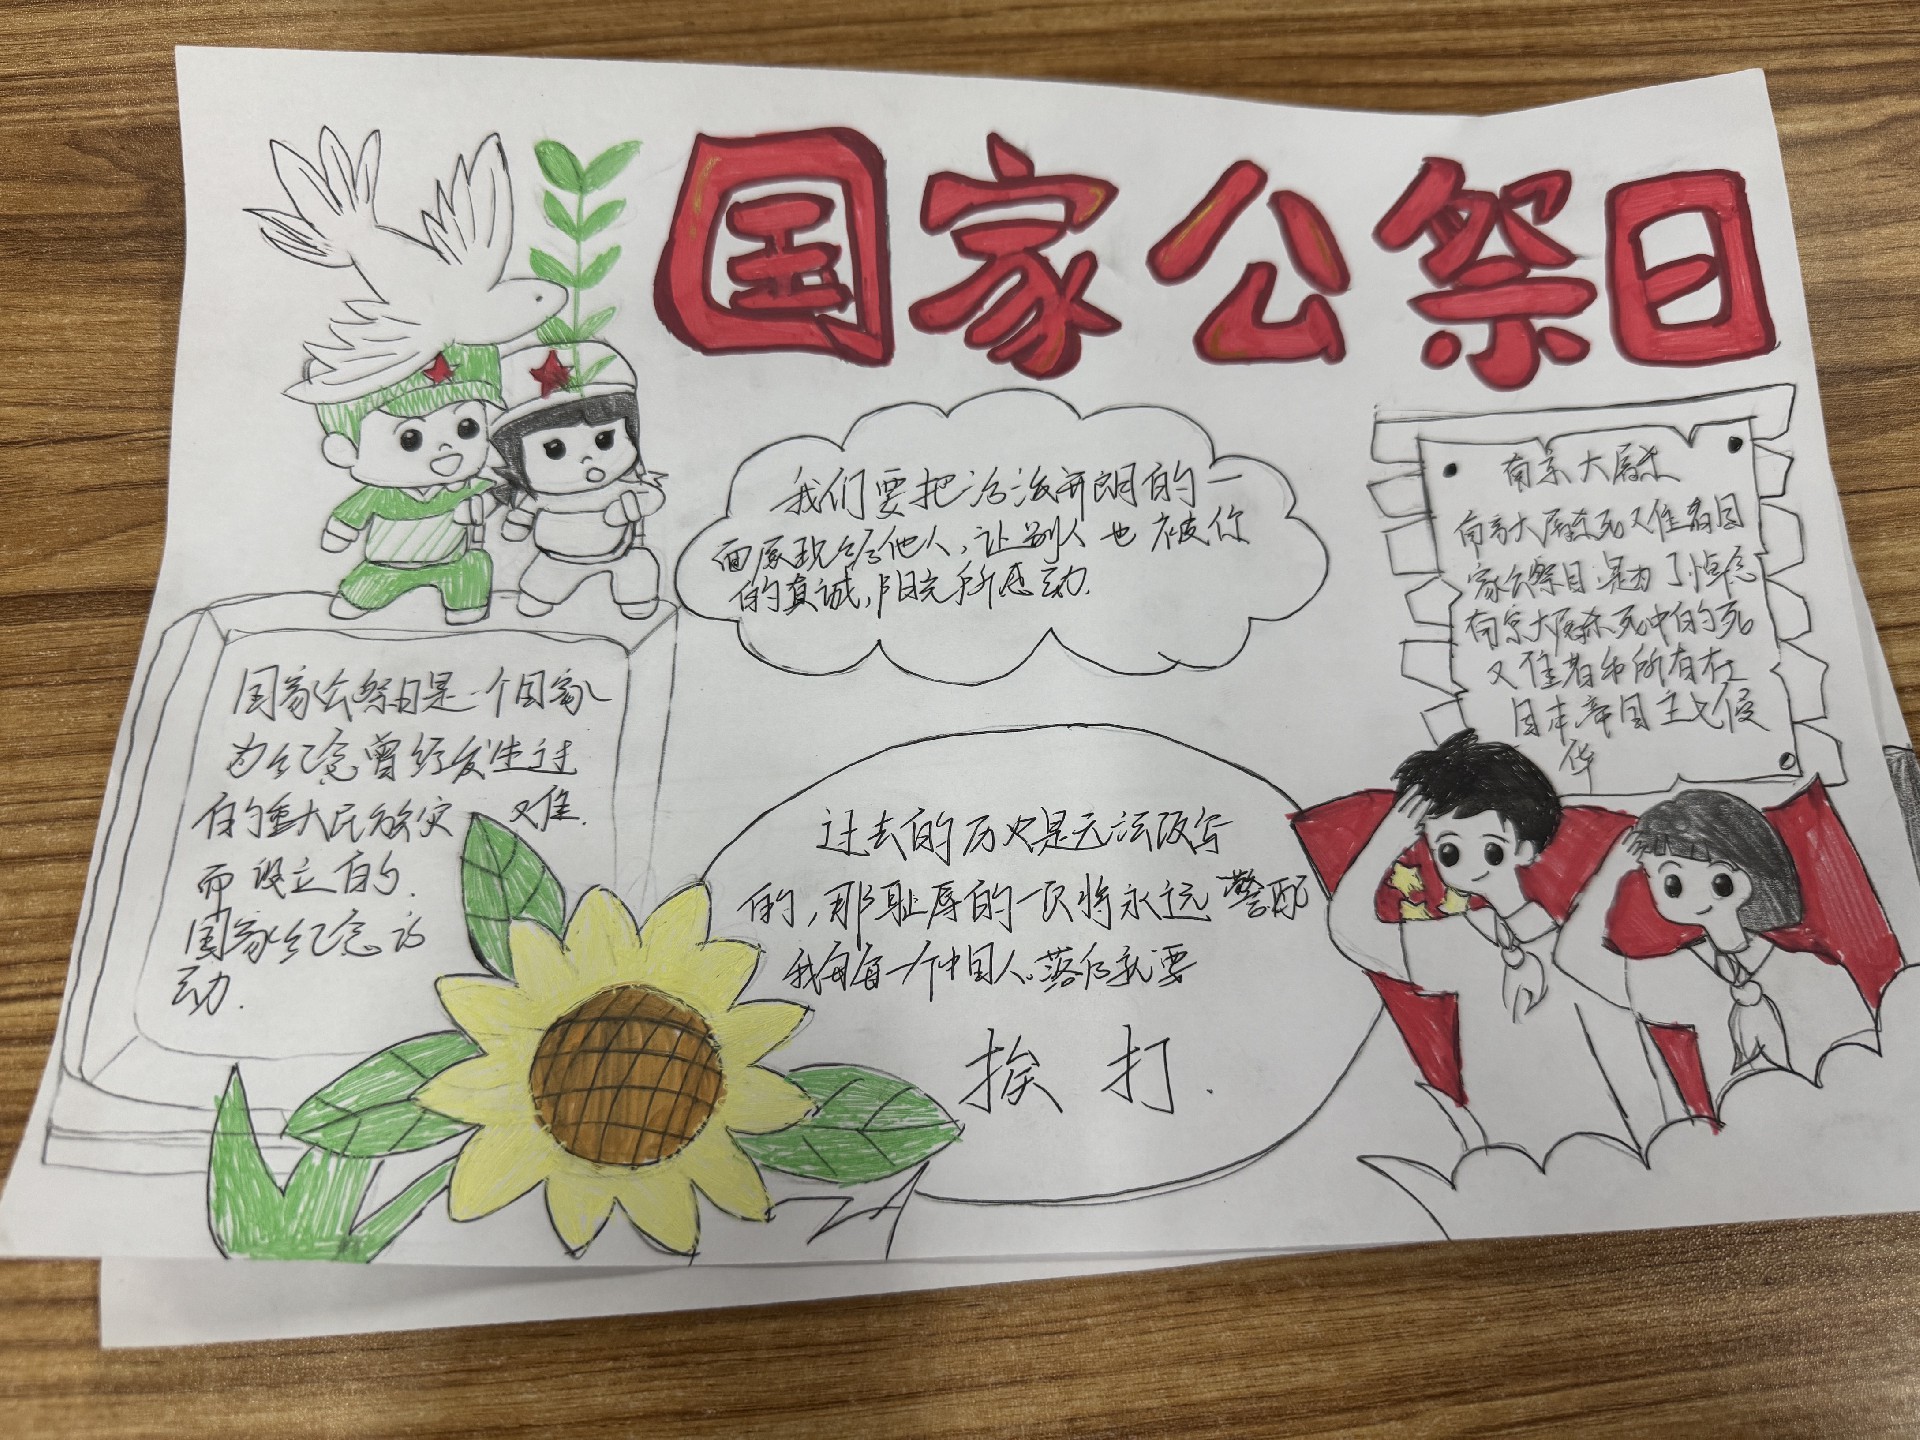 国家公祭日
我们要把活泼开朗的一
面展现给他人,让别人也被你
的真诚,阳光所感动.
南京大屠杀
南京大屠杀死难者国
家公祭日是为了悼念
南京大屠杀死中的死
难者和所有在
日本帝国主义侵
华
国家公祭日是一个国家
为纪念曾经发生过
的重大民族灾难.
而设立的.
国家纪念活
动.
过去的历史是无法改写
的,那耻辱的一页将永远警醒
我每一个中国人。落后就要
挨打.